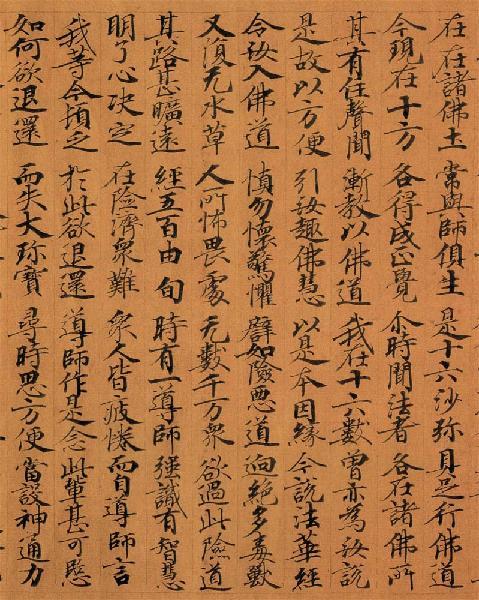 在在諸佛土 常與師俱生 是十六沙弥 具足行佛道
今現在十方 各得成正覺 尒時聞法者 各在諸佛所
其有住聲聞 漸教以佛道 我在十六數 曾亦為汝說
是故以方便 引汝趣佛慧 以是本因緣 今說法華經
令汝入佛道 慎勿懷驚懼 譬如險惡道 迥絕多毒獸
又復无水草 人所怖畏處 无數千万衆 欲過此險道
其路甚曠遠 經五百由旬 時有一導師 强識有智慧
明了心決定 在險濟衆難 衆人皆疲惓 而白導師言
我等今頓乏 於此欲退還 導師作是念 此輩甚可愍
如何欲退還 而失大珎寶 尋時思方便 當設神通力